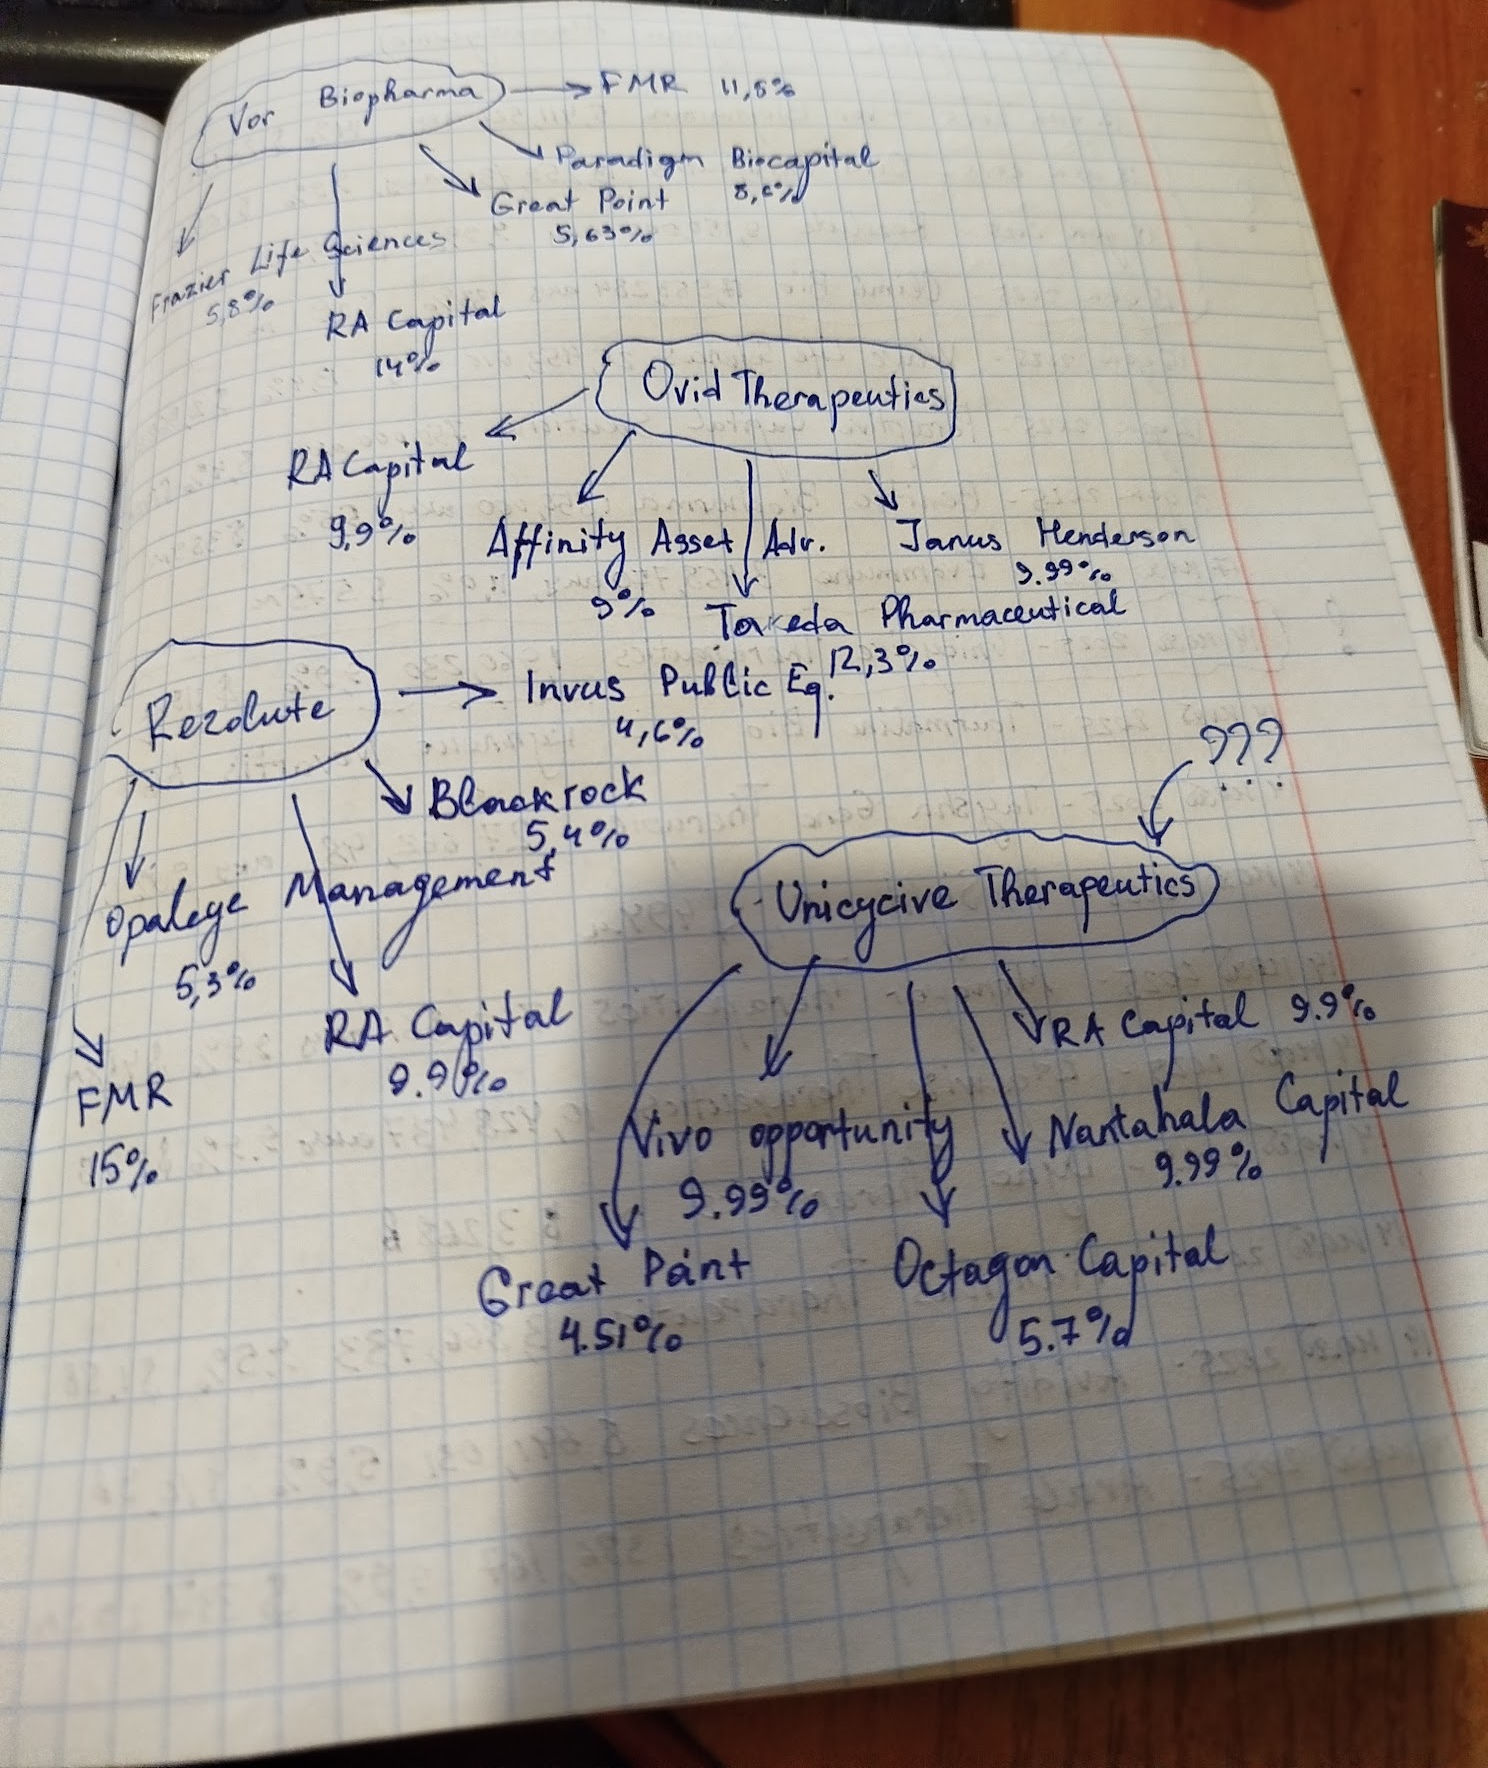 Vor Biopharma
FMR 11,5%
Paradigm Biocapital
8,6%
Great Point
5,63%
Frazier Life Sciences
5,8%
RA Capital
14%
Ovid Therapeutics
RA Capital
9,9%
Affinity Asset Adv.
9%
Janus Henderson
9.99%
Takeda Pharmaceutical
12,3%
Rezolute
Invus Public Eq.
4,6%
Blackrock
5,4%
Opaleye Management
5,3%
RA Capital
9.9%
FMR
15%
???
Unicycive Therapeutics
RA Capital 9.9%
Nantahala Capital
9.99%
Vivo opportunity
9.99%
Great Point
4.51%
Octagon Capital
5.7%